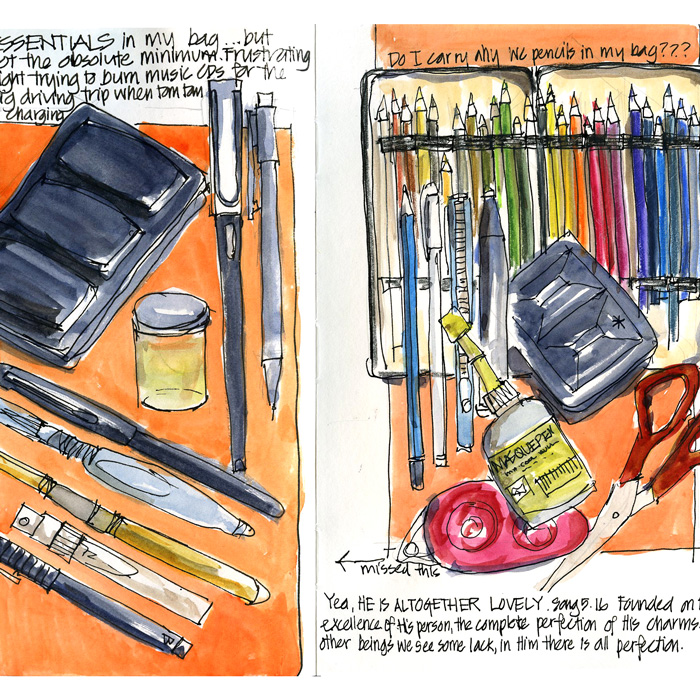 ESSENTIALS in my bag...but
ot the absolute minimum. Frustrating
ight trying to burn music CDs for the
g driving trip when tom tom
charging
Do I carry any WC pencils in my bag???
MASQUEPEN
missed this
Yea, HE IS ALTOGETHER LOVELY. Song 5.16 Founded on
excellence of His person, the complete perfection of His charms.
other beings we see some lack, in Him there is all perfection.